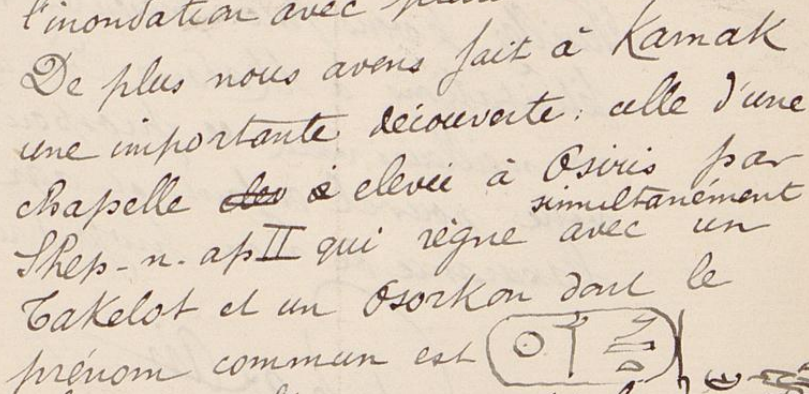 l'inondation avec
De plus nous avons fait à Karnak
une importante découverte : celle d'une
chapelle elevée à Osiris par
simultanément
Shep-n-ap II qui règne avec un
Takelot et un Osorkon dont le
prénom commun est